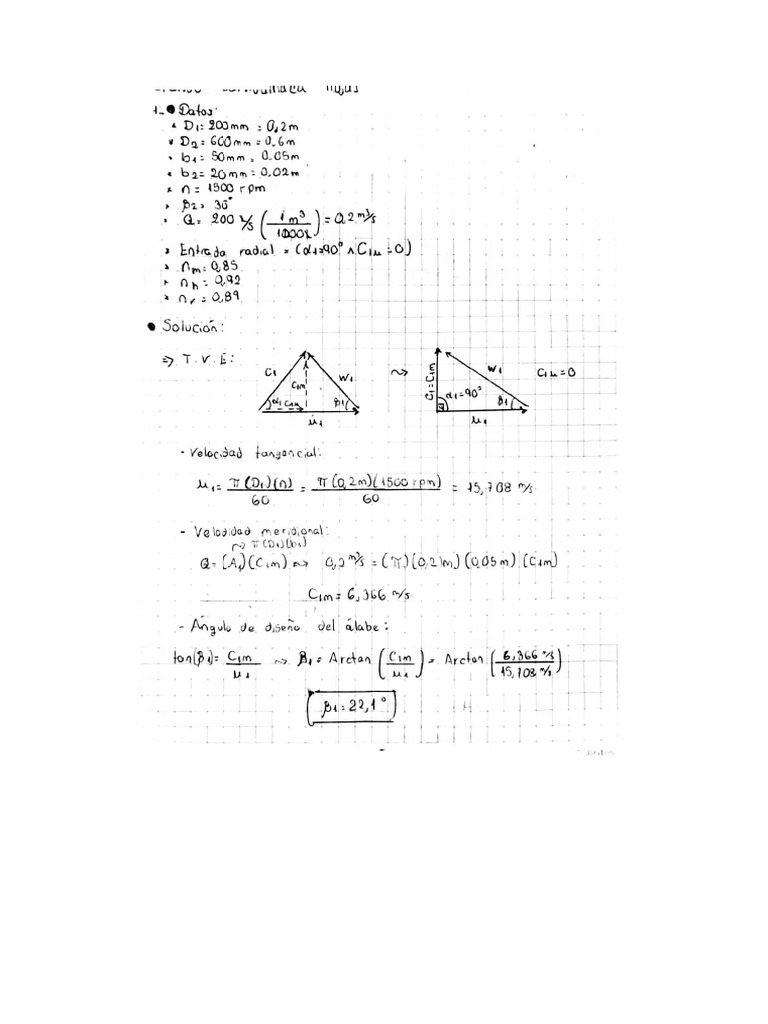 1.- ● Datos:
• D1= 200mm = 0,2m
• D2= 600mm = 0,6m
• b1= 50mm = 0,05m
• b2= 20mm = 0,02m
• n = 1500 rpm
• β2 = 30°
• Q= 200 L/s (1 m³/1000L) = 0,2 m³/s
• Entrada radial = (α1=90° ∧ C1u = 0)
• ηm= 0,85
• ηh= 0,92
• ηv = 0,89
● Solución:
⇒ T.V.E:
C1 C1m W1 α1 C1u β1 u1 ⇝ C1=C1m α1=90° W1 β1 u1 C1u=0
- Velocidad tangencial:
u1= π(D1)(n)/60 = π(0,2m)(1500 rpm)/60 = 15,708 m/s
- Velocidad meridional:
⇝ π(D1)(b1)
Q= (A1)(C1m) ⇝ 0,2 m³/s = (π)(0,2m)(0,05m)(C1m)
C1m= 6,366 m/s
- Ángulo de diseño del álabe:
tan(β1)= C1m/u1 ⇝ β1= Arctan (C1m/u1) = Arctan (6,366 m/s/15,708 m/s)
β1= 22,1°